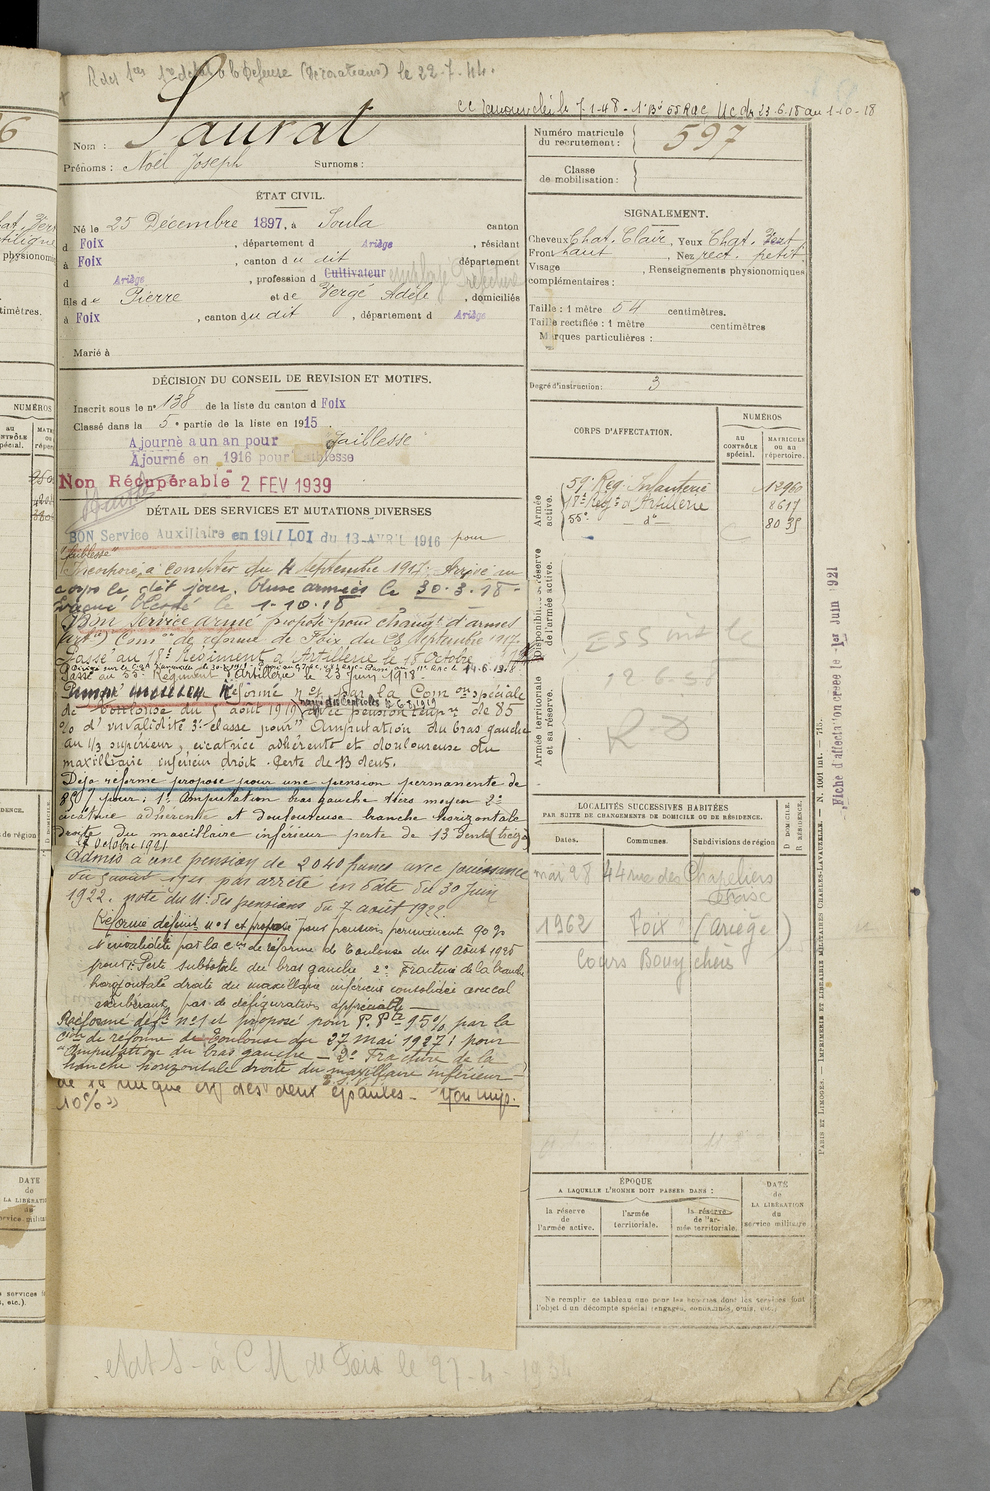 le 22-7-44.
7-1-48 - 23-6-18 au 1-10-18
Nom : Saurat
Prénoms : Noël Joseph Surnoms :
Numéro matricule du recrutement : 597
Classe de mobilisation :
ÉTAT CIVIL.
Né le 25 Décembre 1897, à Soula canton
d Foix , département d Ariège , résidant
à Foix , canton du dit département
d Ariège , profession d Cultivateur employé Préfecture
fils de Pierre et de Vergé Adèle , domiciliés
à Foix , canton du dit , département d Ariège
Marié à
SIGNALEMENT.
Cheveux Chat. Clair, Yeux Chat. Vert
Front haut , Nez rect. petit
Visage , Renseignements physionomiques
complémentaires :
Taille : 1 mètre 54 centimètres.
Taille rectifiée : 1 mètre centimètres
Marques particulières :
Degré d'instruction : 3
DÉCISION DU CONSEIL DE REVISION ET MOTIFS.
Inscrit sous le n° 138 de la liste du canton d Foix
Classé dans la 5e partie de la liste en 1915
Ajourné a un an pour faiblesse
Ajourné en 1916 pour faiblesse
Non Récupérable 2 FEV 1939
DÉTAIL DES SERVICES ET MUTATIONS DIVERSES
BON Service Auxiliaire en 1917 LOI du 13 AVRIL 1916 pour
"faiblesse"
Incorporé à compter du 4 Septembre 1917. Arrivé au
corps le dit jour. Venu armées le 30-3-18 -
Evacué blessé le 1-10-18
Bon service armé proposé pour changt d'armes
de réforme de Foix du Septembre 1917.
Passé au 18e Régiment d'Artillerie le 18 Octobre
Passé au 55e Régiment d'Artillerie le 23 Juin 1918.
Réformé n°1 par la Comon spéciale
de Toulouse du août 1919 avec pension temp de 85
% d'invalidité 3e classe pour "Amputation du bras gauche
au 1/3 supérieur, cicatrice adhérente et douloureuse du
maxillaire inférieur droit. Perte de 13 dents.
Déjà réformé proposé pour une pension permanente de
85% pour : 1° amputation bras gauche tiers moyen 2°
cicatrice adhérente et douloureuse branche horizontale
droite du maxillaire inférieur perte de 13 dents (treize)
Octobre 1921
Admis à une pension de 2040 francs avec jouissance
du août par arrêté en date du 30 Juin
1922. note du M. des pensions du 7 août 1922.
Réformé définit. n°1 et proposé pour pension permanent 90%
d'invalidité par la con de réforme de Toulouse du 4 Août 1925
pour : Perte subtotale du bras gauche 2° Fracture de la branche
horizontale droite du maxillaire inférieur consolidée avec cal
exubérant, pas de défiguration appréciable
Réformé déft n°1 et proposé pour P. Pte 95% par la
con de réforme de Toulouse du 27 Mai 1927 : pour
"Amputation du bras gauche - 2° Fracture de la
branche horizontale droite du maxillaire inférieur -
des deux épaules - Non imp.
10% »
CORPS D'AFFECTATION.
NUMÉROS
au CONTRÔLE spécial.
MATRICULE ou au répertoire.
Armée active.
59e Rég. Infanterie 12960
18e Régt d'Artillerie 8617
55e - d° - 8035
Disponibilité et réserve de l'armée active.
12-6-50
Armée territoriale et sa réserve.
RD
LOCALITÉS SUCCESSIVES HABITÉES
PAR SUITE DE CHANGEMENTS DE DOMICILE OU DE RÉSIDENCE.
Dates. Communes. Subdivisions de région
D DOMICILE. R RÉSIDENCE.
mai 28 44 rue des Chapeliers
1962 Foix (Ariège)
Cours Bouychères
ÉPOQUE
A LAQUELLE L'HOMME DOIT PASSER DANS :
la réserve de l'armée active.
l'armée territoriale.
la réserve de l'armée territoriale.
DATE de LA LIBÉRATION du service militaire
Ne remplir ce tableau que pour les hommes dont les services font
l'objet d'un décompte spécial (engagés, condamnés, omis, etc.)
Fiche d'affectation créée le 1er Juin 1921
PARIS ET LIMOGES. — IMPRIMERIE ET LIBRAIRIE MILITAIRES CHARLES-LAVAUZELLE — N. 1001 int. — 715.
état S - à C M de Foix le 27-4-1934